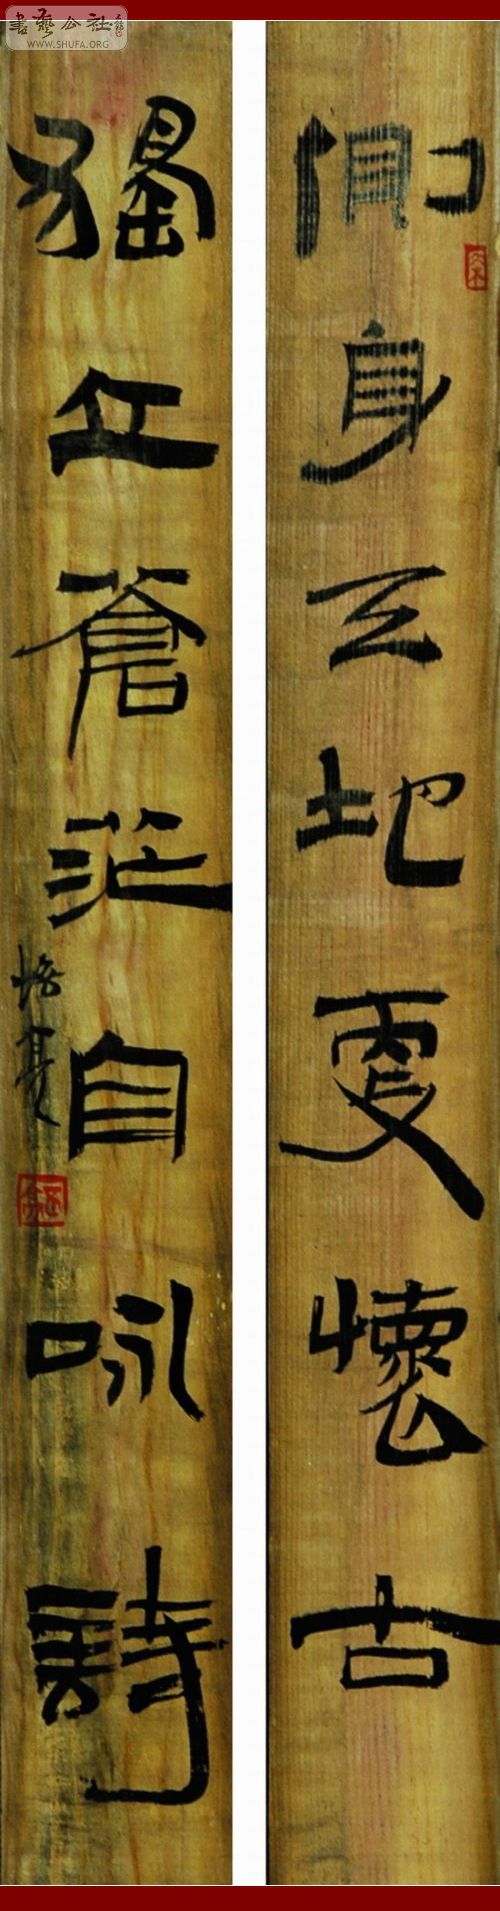 書藝公社
WWW.SHUFA.ORG
側身天地更懷古
獨立蒼茫自咏詩